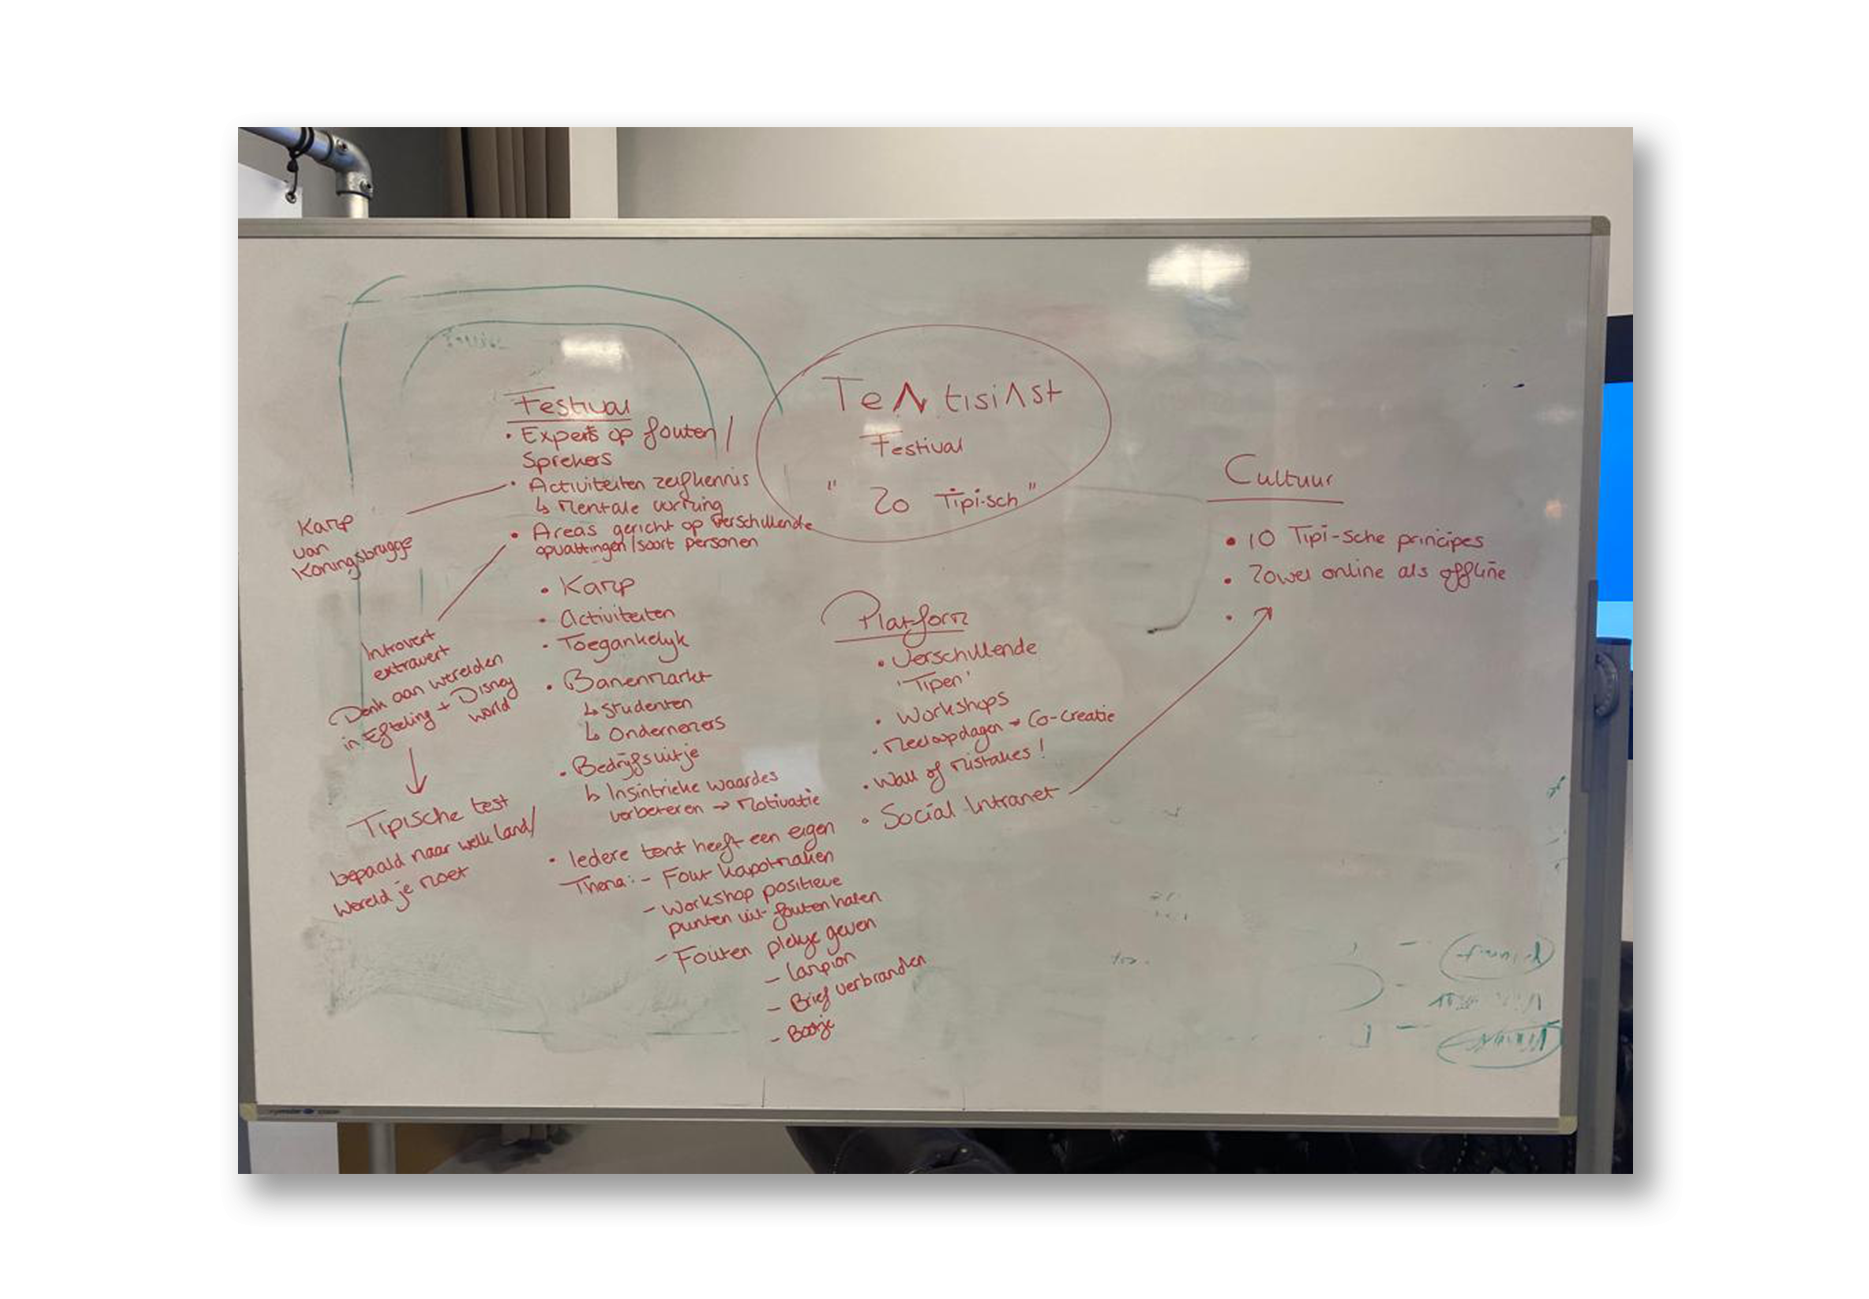 TeNtisiASt
Festival
" Zo Tipi-sch "
Festival
• Experts op fouten /
Sprekers
• Activiteiten zelfkennis
↳ Mentale vorming
• Areas gericht op verschillende
opvattingen/soort personen
Kamp
van
Koningsbrugge
Introvert
extravert
Denk aan werelden
in Efteling + Disney
world
Tipische test
bepaald naar welk land/
wereld je moet
• Kamp
• Activiteiten
• Toegankelijk
• Banenmarkt
↳ Studenten
↳ Ondernemers
• Bedrijfsuitje
↳ Insintrieke waardes
verbeteren → Motivatie
• Iedere tent heeft een eigen
Thema: - Fout kapotmaken
- Workshop positieve
punten uit fouten halen
- Fouten plekje geven
- Lampion
- Brief verbranden
- Bootje
Platform
• Verschillende
'Tipen'
• Workshops
• Meeloopdagen → Co-creatie
• Wall of Mistakes!
• Social Intranet
Cultuur
• 10 Tipi-sche principes
• Zowel online als offline
•